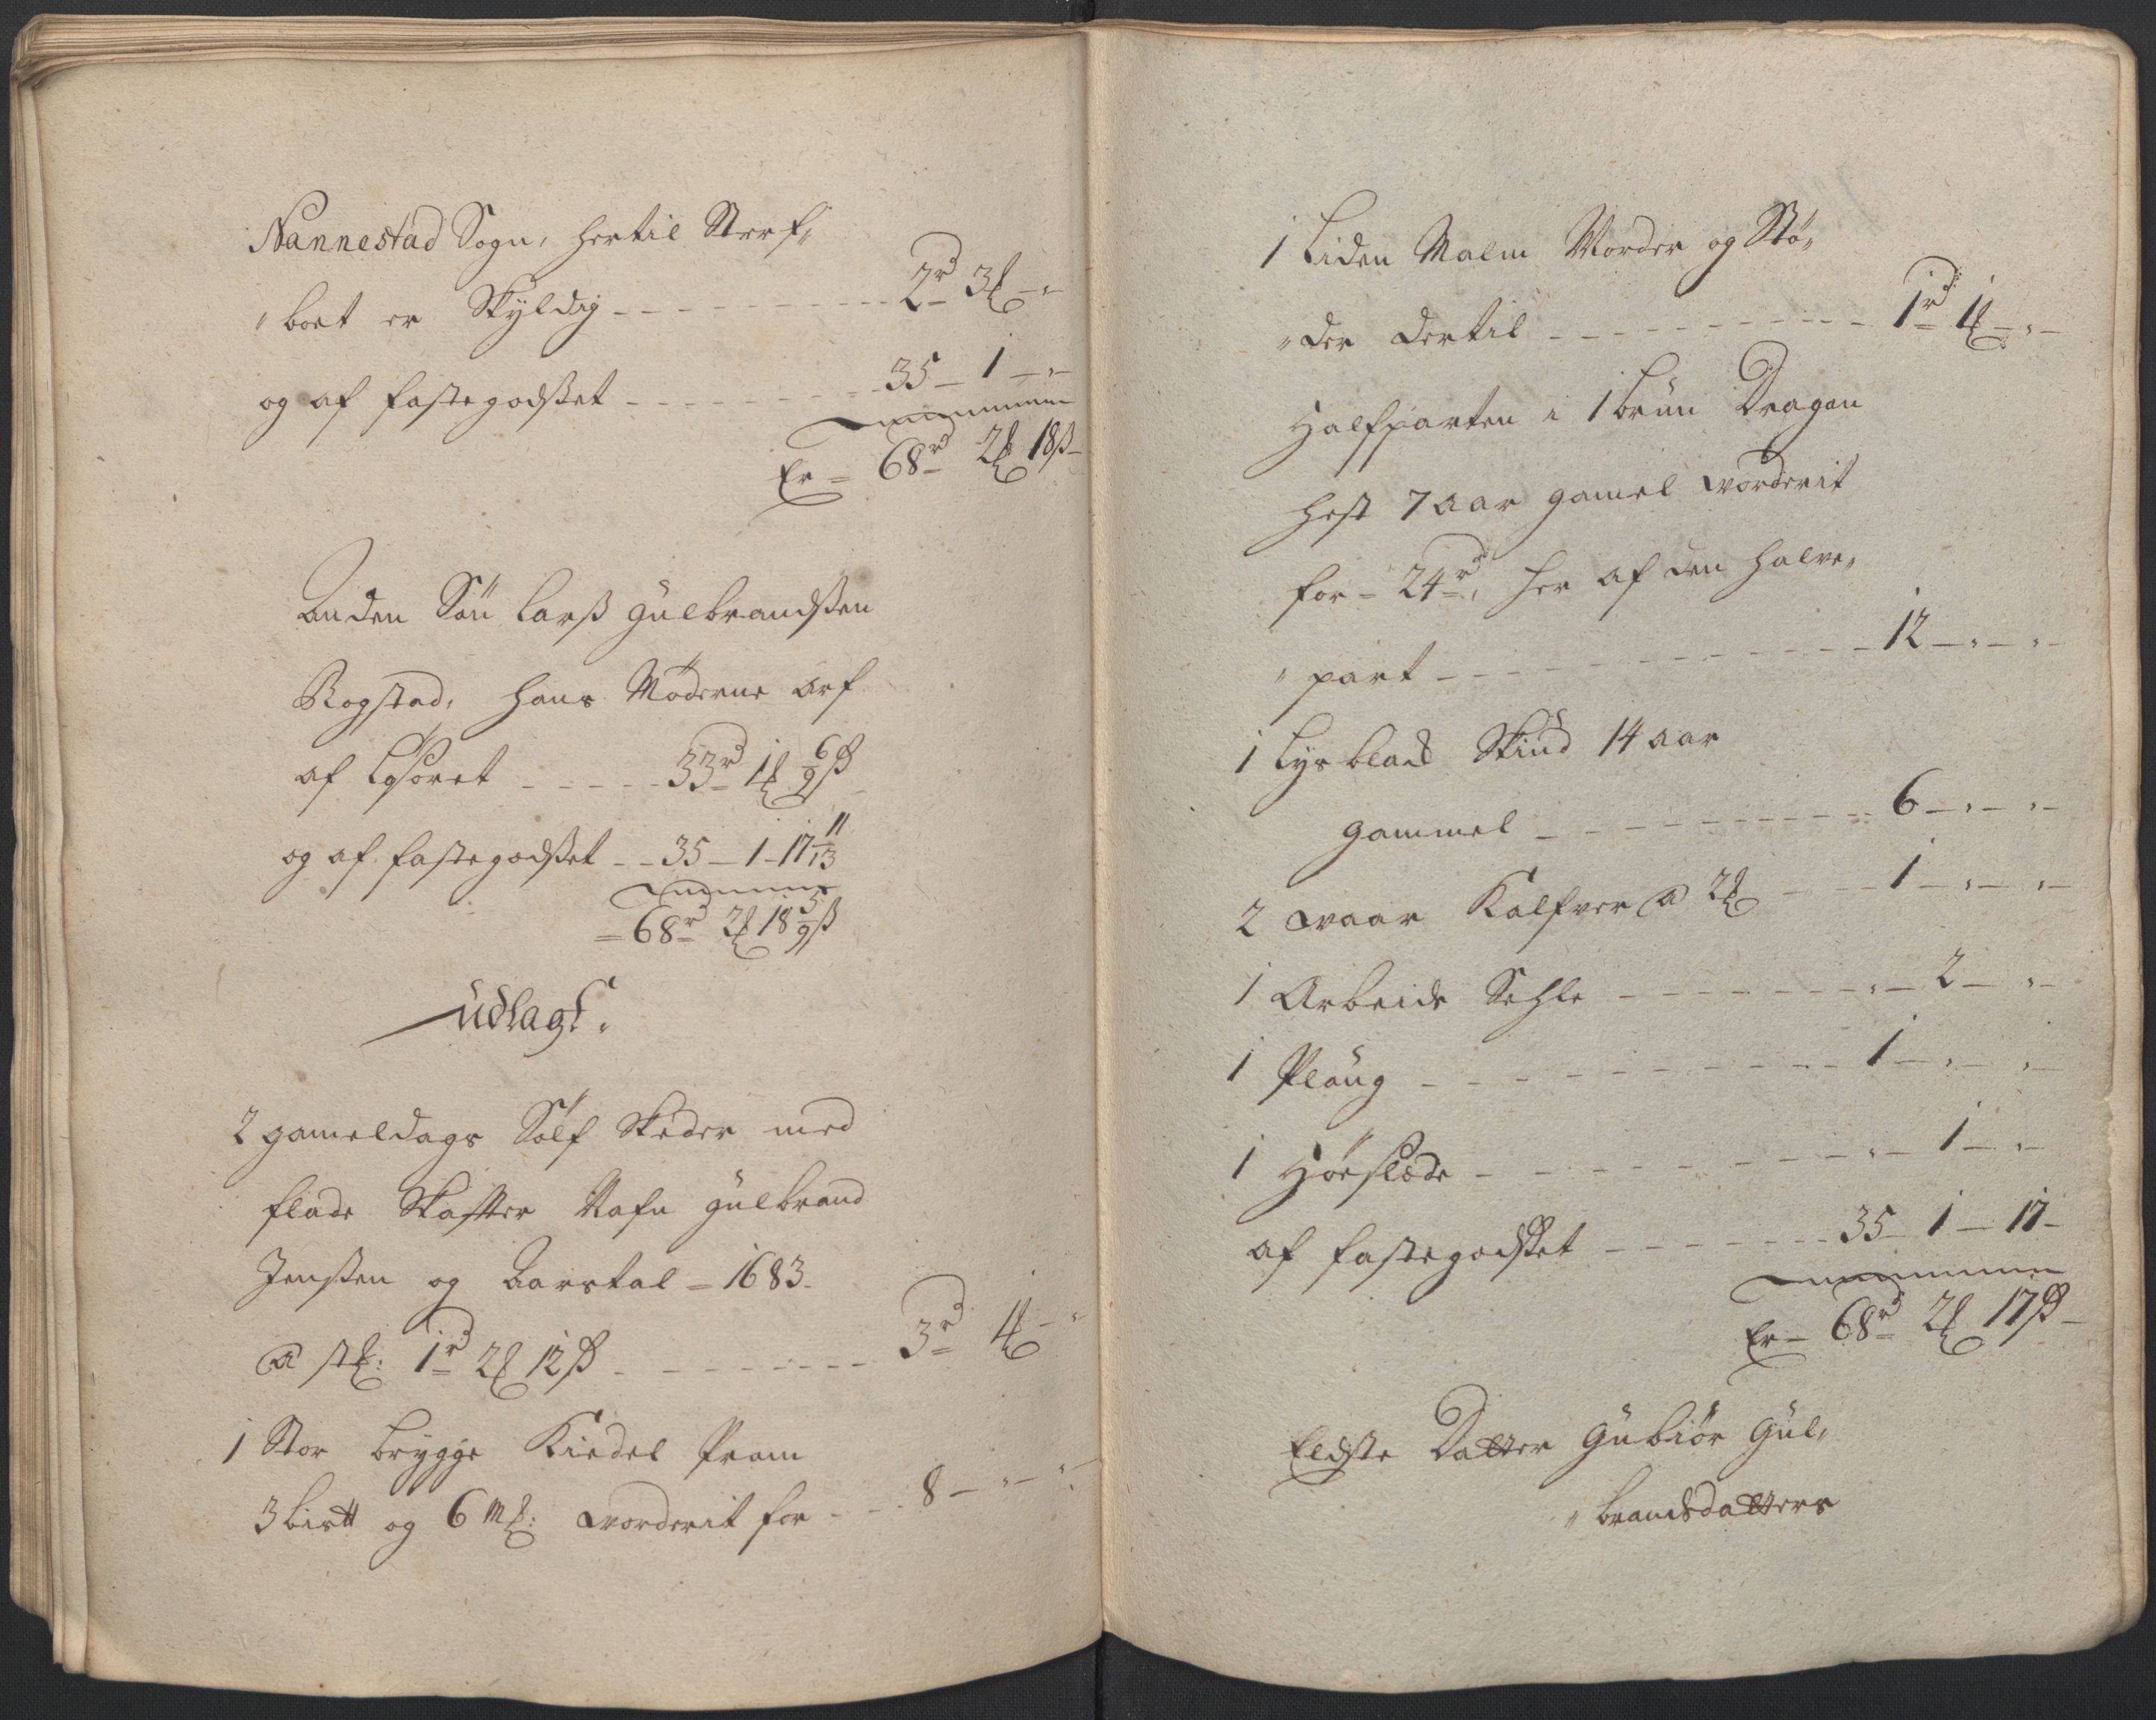 Nannestad Sogn, hertil Sterf„
„boet er Skyldig - - - - - - - - - 2rd 3℔ - „
og af fastegodset - - - - - - - 35 - 1 - „
Er = 68rd 2℔ 18ß -
Anden Søn Larß Gulbrandßen
Bogstad, hans Møderne arf
af Løßøret - - - - - 33rd 1℔ 6/9ß
og af fastegodset - - 35 - 1 - 17 11/13
= 68rd 2℔ 18 5/9ß
udlagt.
2 gameldags Sølf Skeder med
flade Skaffter Nafn Gulbrand
Jenßen og Aarstal = 1683.
a stk: 1rd 2℔ 12ß - - - - - - - - 3rd 1℔ - „
1 Stor brygge Kiedel
3 bis℔ og 6 Mk: vorderit for - - - 8 - „ - „
1 Liden Malm Morder og Stø„
„der dertil - - - - - - - - - - 1rd 1℔ - „ -
Halfparten i 1 brun Dragon
Hest 7 aar gamel vorderit
for = 24rd, her af den halve„
„part - - - - - - - - - - - - - 12 - „ - „ -
1 Lys blak Skiud 14 aar
gammel - - - - - - - - - - - 6 - „ - „ -
2 vaar Kalfver a 2℔ - - - 1 - „ - „ -
1 Arbeids Sehle - - - - - - - „ - 2 - „ -
1 Ploug - - - - - - - - - - - 1 - „ - „ -
1 Høeslæde - - - - - - - - - „ - 1 - „ -
af fastegodset - - - - - - - 35 - 1 - 17 -
Er = 68rd 2℔ 17ß -
Eldste Datter Gubiør Gul„
„brandsdatters